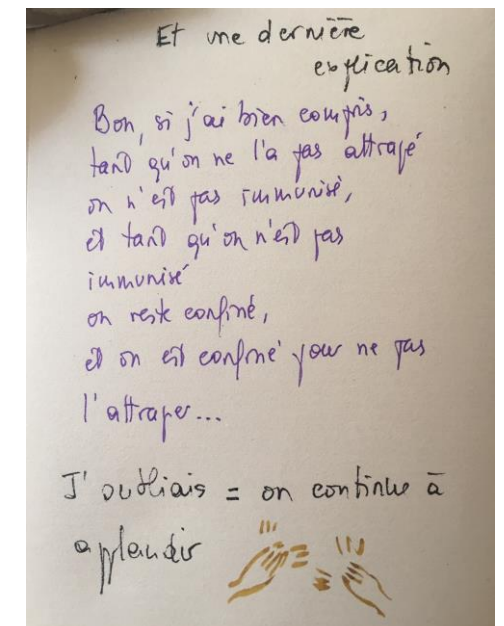 Et une dernière
explication
Bon, si j'ai bien compris,
tant qu'on ne l'a pas attrapé
on n'est pas immunisé,
et tant qu'on n'est pas
immunisé
on reste confiné,
et on est confiné pour ne pas
l'attraper...
J'oubliais = on continue à
applaudir